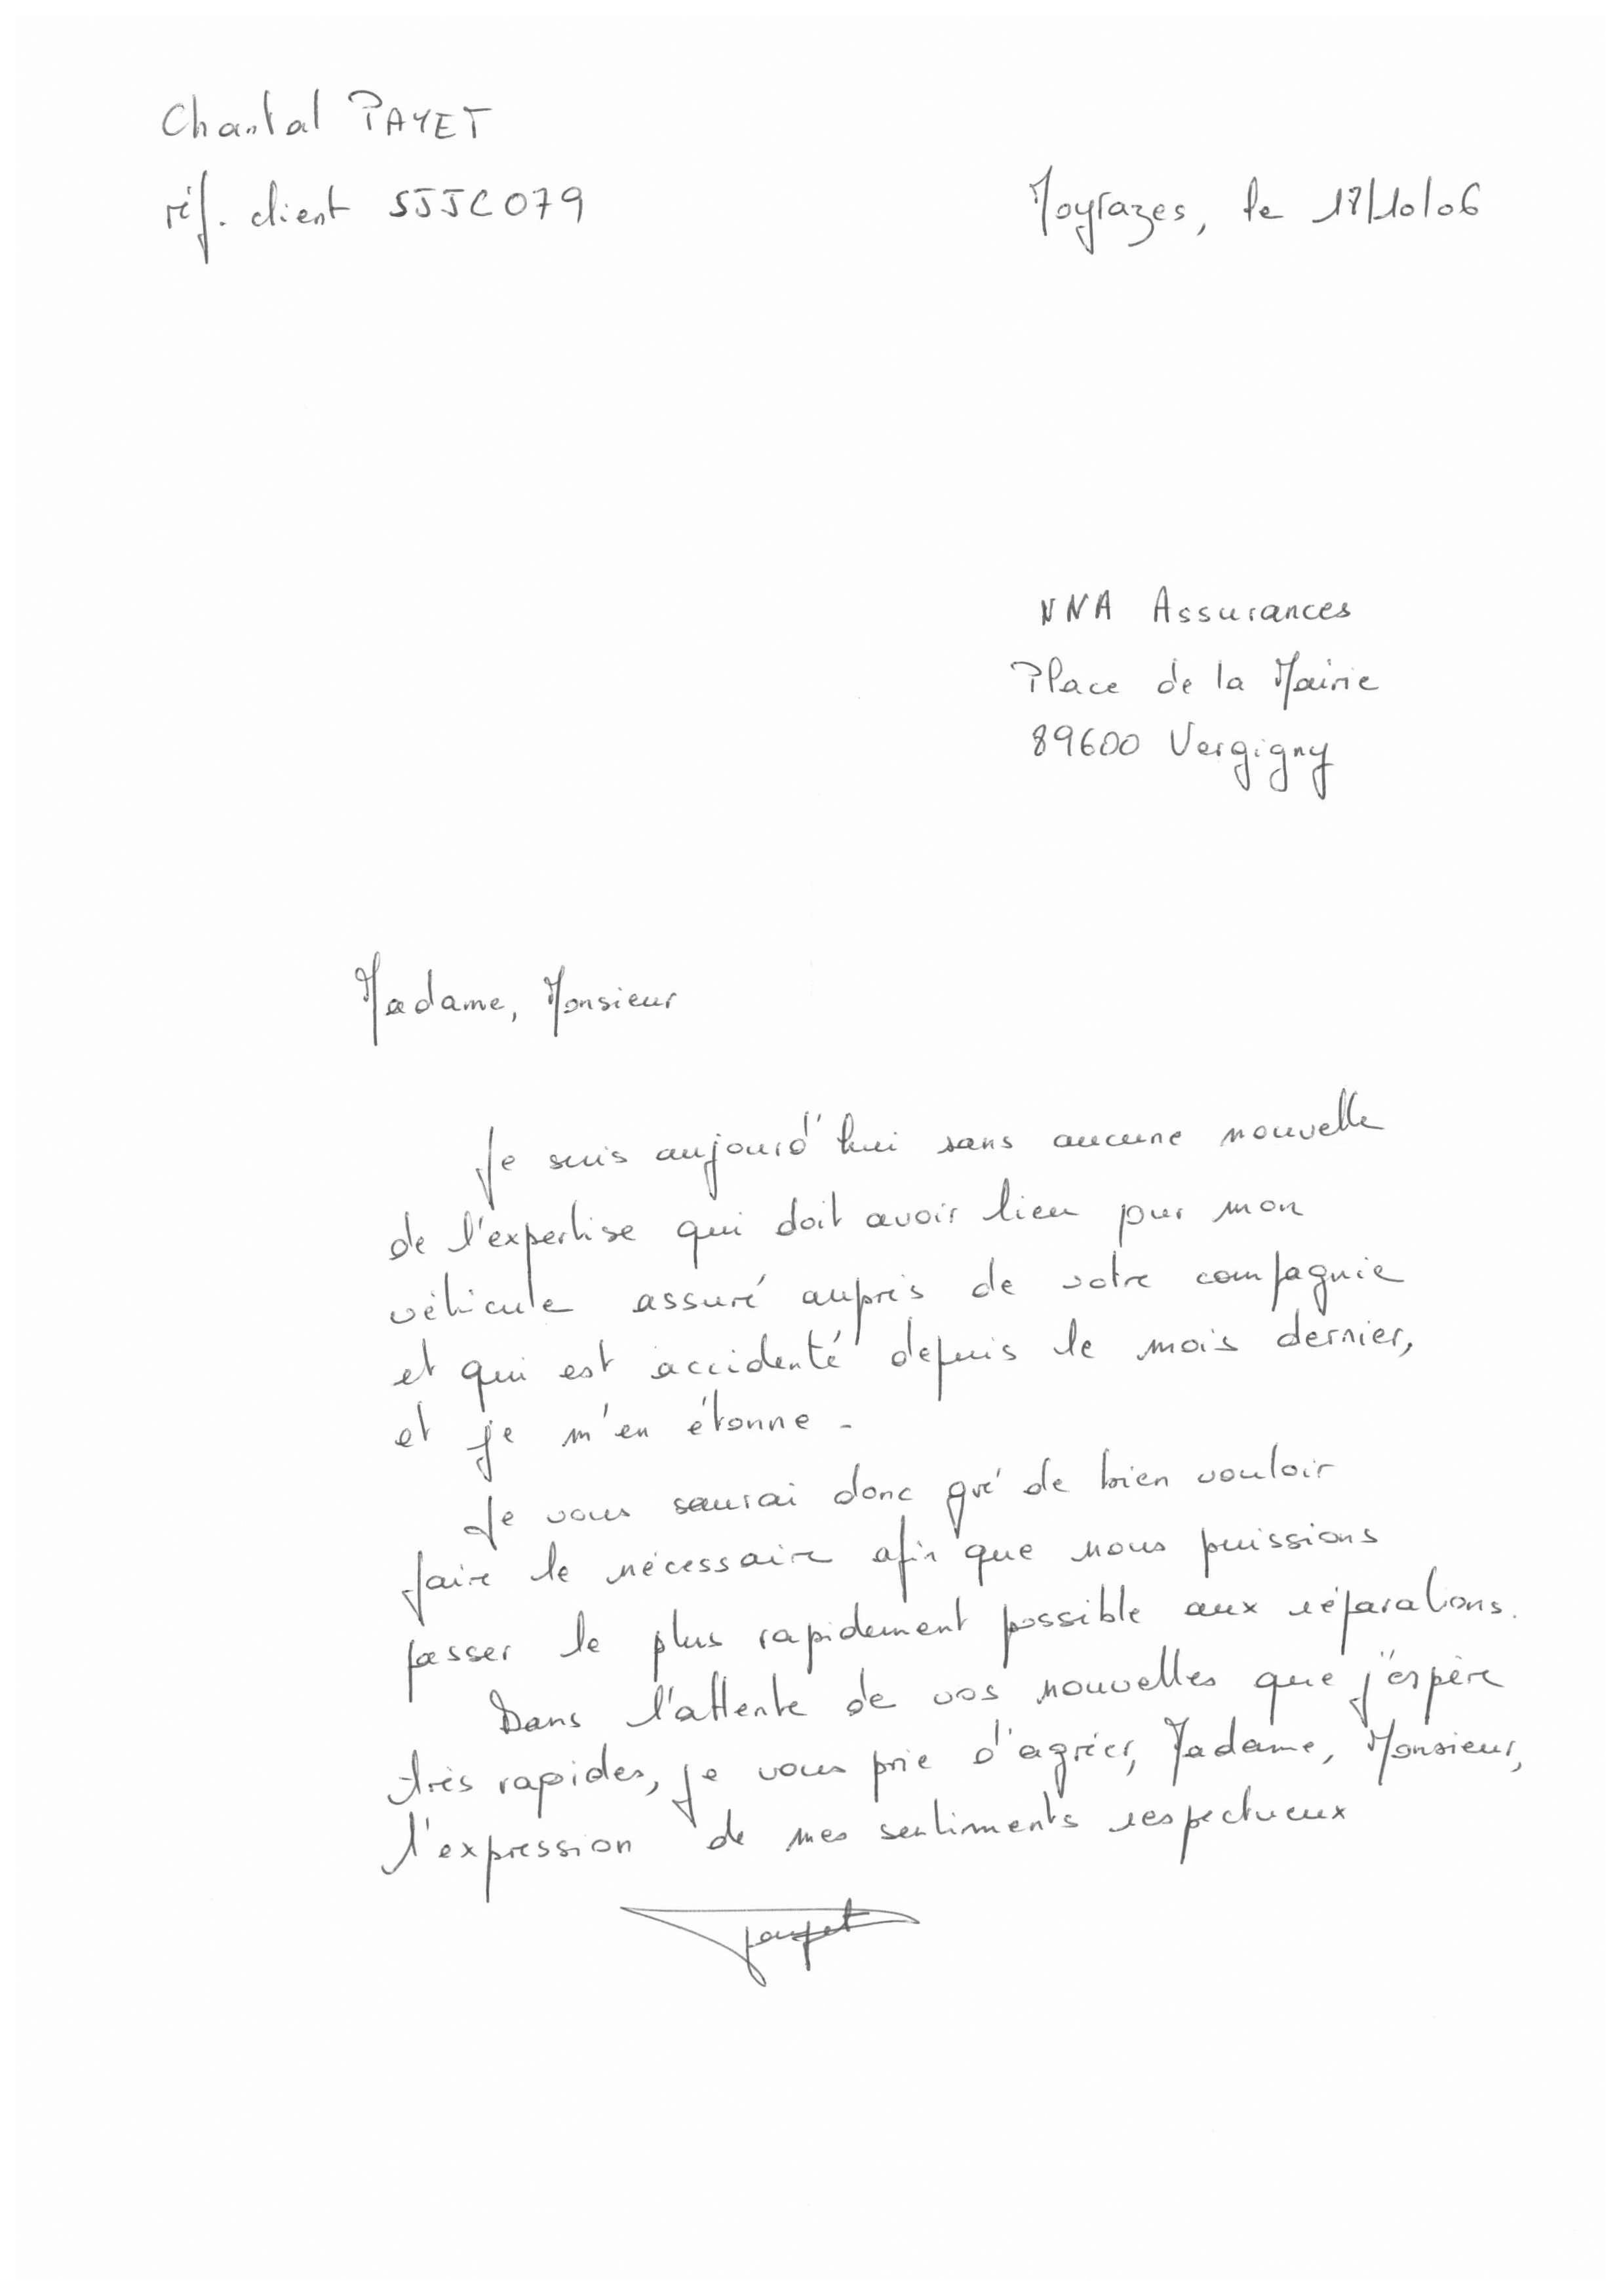 Chantal PAYET
réf. client SJJC079
Moyrazes, le 17/10/06
NNA Assurances
Place de la Mairie
89600 Vergigny
Madame, Monsieur
Je suis aujourd'hui sans aucune nouvelle
de l'expertise qui doit avoir lieu pour mon
véhicule assuré auprès de votre compagnie
et qui est accidenté depuis le mois dernier,
et je m'en étonne.
Je vous saurai donc gré de bien vouloir
faire le nécessaire afin que nous puissions
passer le plus rapidement possible aux réparations.
Dans l'attente de vos nouvelles que j'espère
très rapides, je vous prie d'agréer, Madame, Monsieur,
l'expression de mes sentiments respectueux
Payet